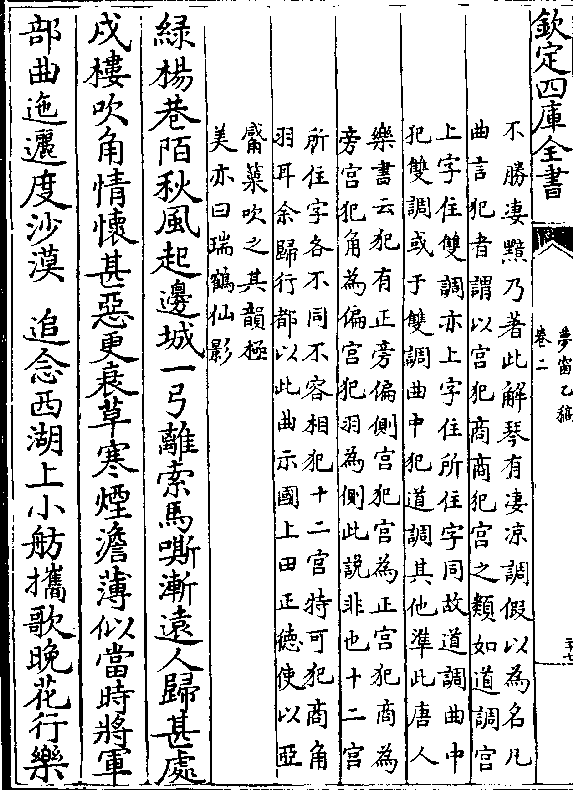 欽定四庫全書
夢窗乙稿
卷二
不勝凄黯乃著此解琴有凄凉調假以為名凡
曲言犯者謂以宫犯商商犯宫之類如道調宫
上字住雙調亦上字住所住字同故道調曲中
犯雙調或于雙調曲中犯道調其他準此唐人
樂書云犯有正旁偏側宫犯宫為正宫犯商為
旁宫犯角為偏宫犯羽為側此說非也十二宫
所住字各不同不容相犯十二宫特可犯商角
羽耳余歸行都以此曲示國上田正徳使以亞
觱葉吹之其韻極
美亦曰瑞鶴仙影
緑楊巷陌秋風起邊城一弓離索馬嘶漸遠人歸甚處
戍樓吹角情懷甚惡更衰草寒煙澹薄似當時將軍
部曲迤邐度沙漠　追念西湖上小舫攜歌晚花行樂